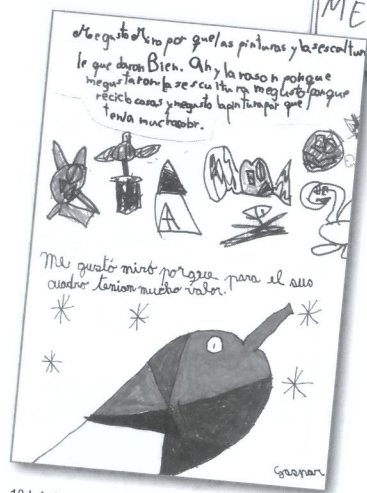 ME
Me gusto Miro por que las pinturas y las escultura
le que daron Bien. Ah y la rason porque
me gustaron las escultura me gusto porque
reciclo casas y me gusto la pintura por que
tenia mucho color.
Me gustó miró porque para el sus
cuadro tenian mucho valor.
Gaspar